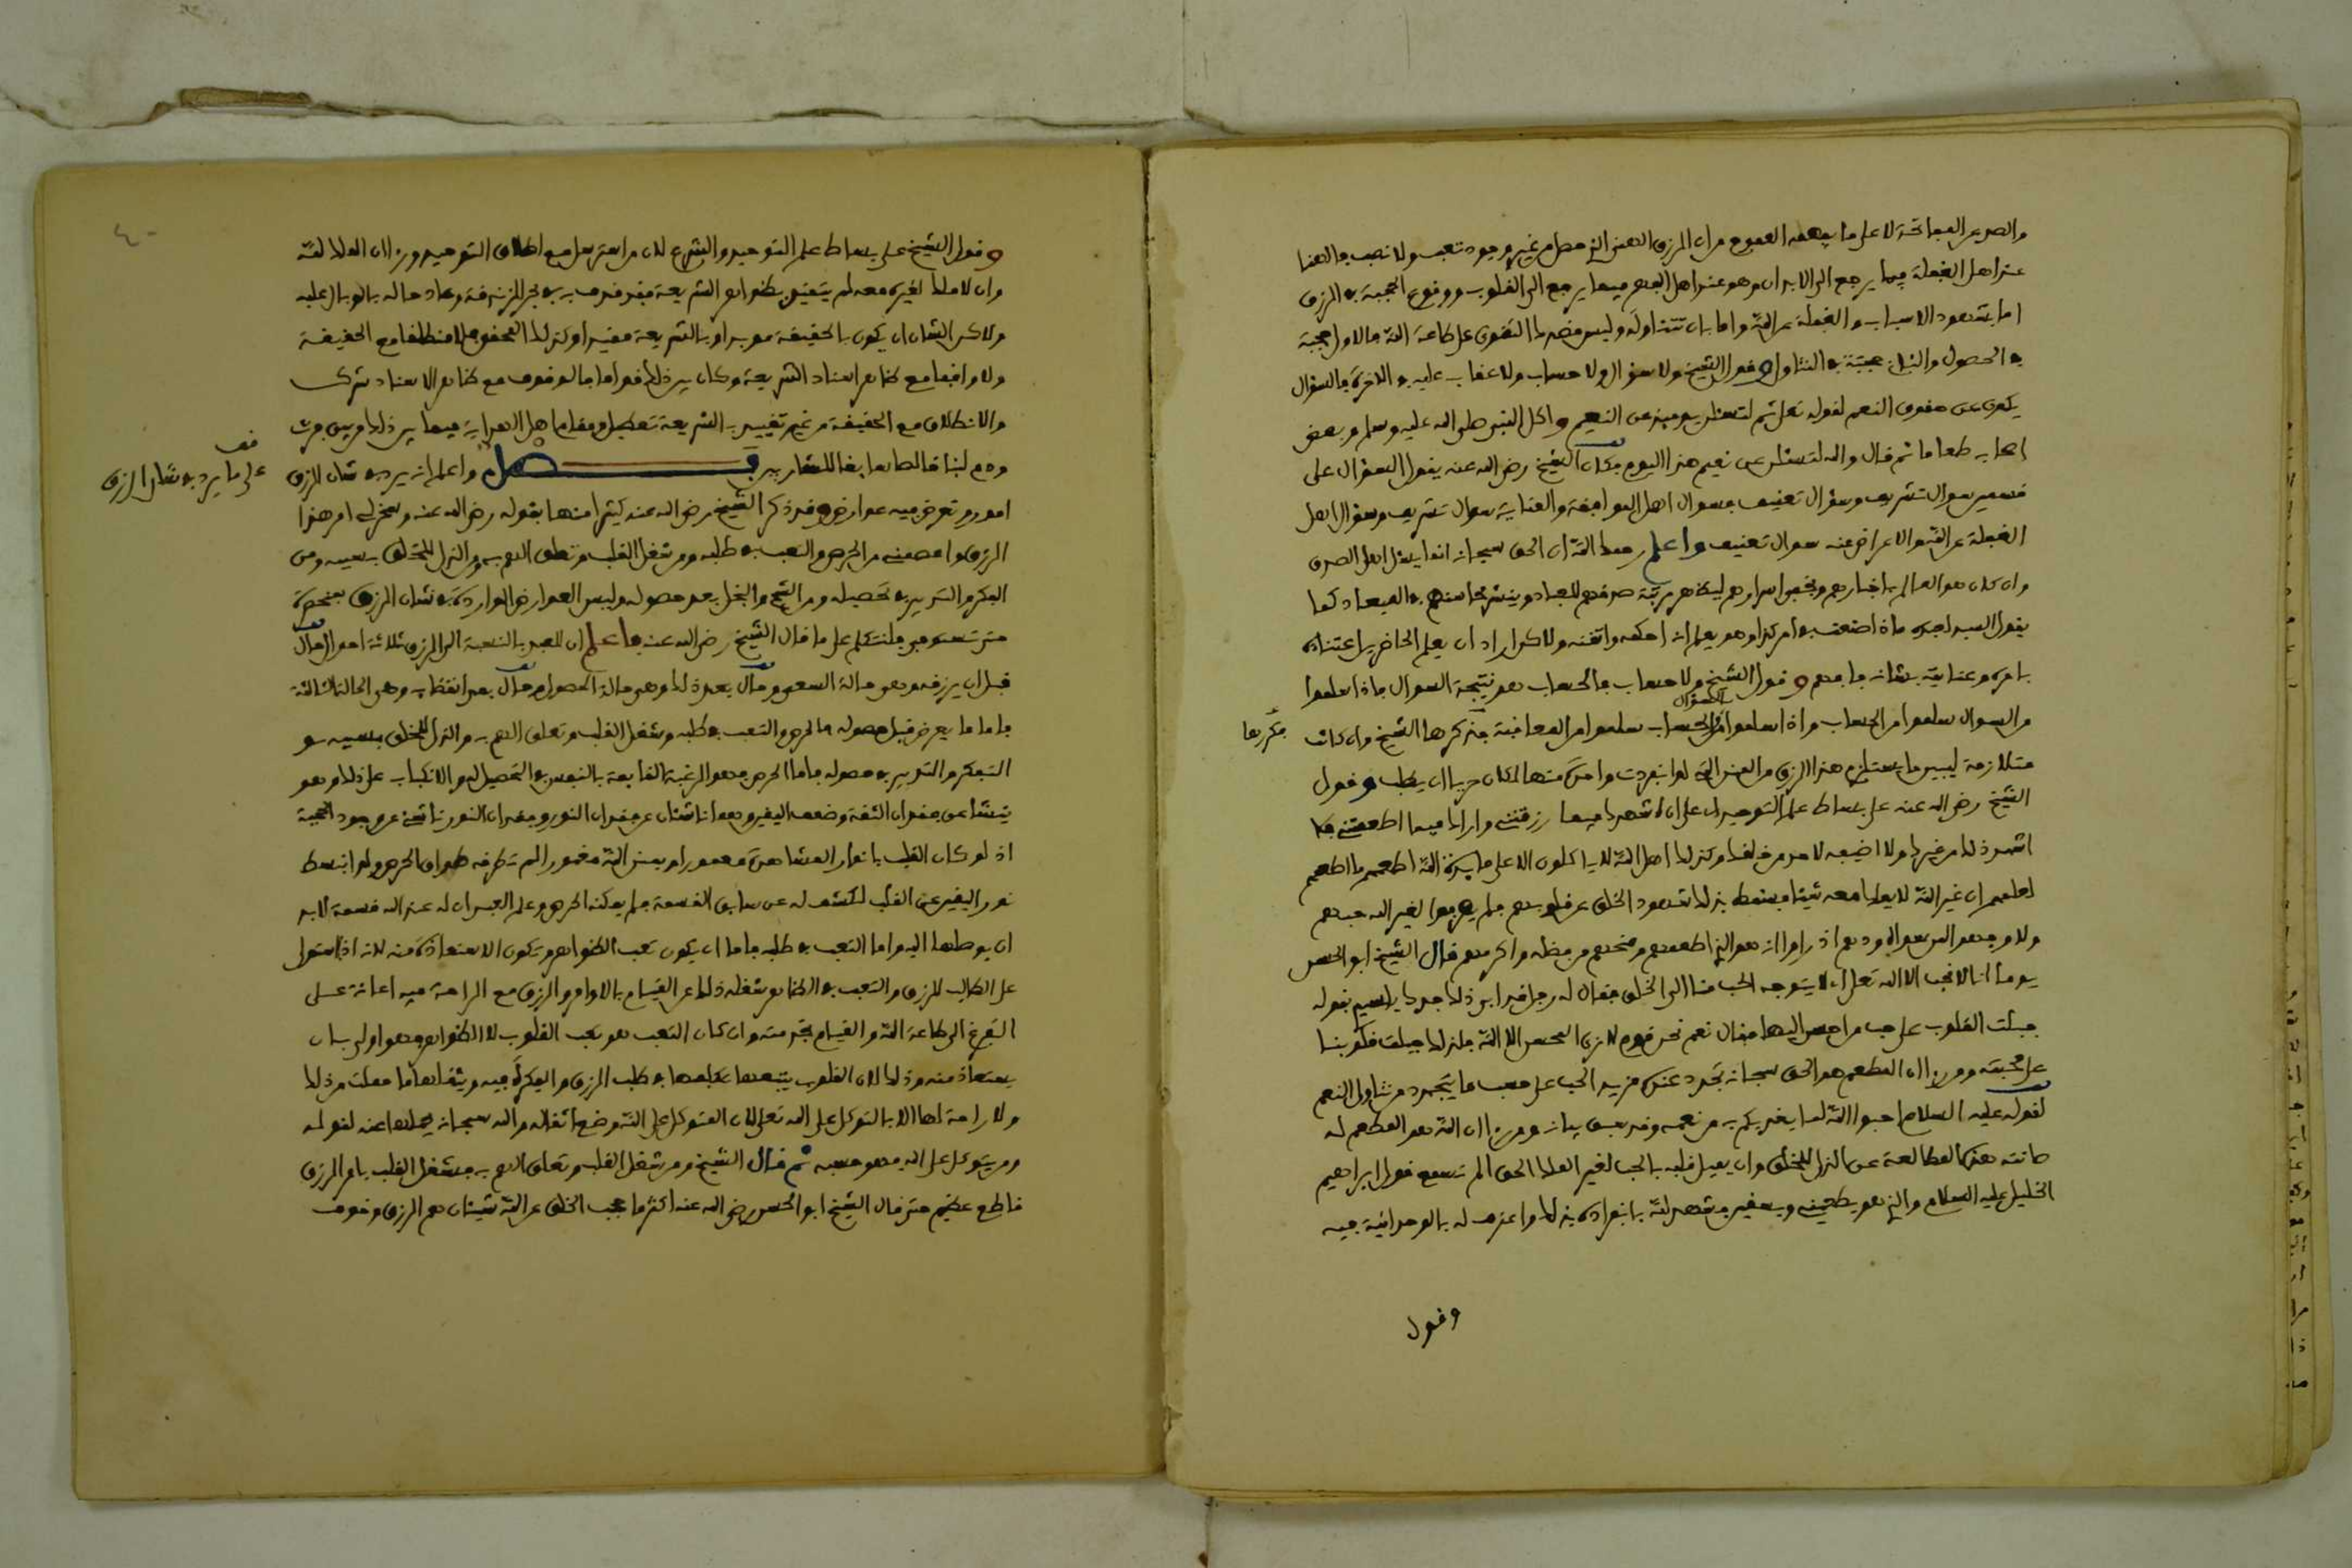 والصد عن المفاتحة لا على ما يفهمه العموم من ان الرزق الهني الذي حصل من غير وجود تعب ولا نصب فالهنا
عند اهل الغفلة فيما يرجع الى الابدان وهو عند اهل الفهم فيما يرجع الى القلوب ووقوع الحجبة في الرزق
اما بشهود الاسباب والغفلة عن الله واما بان تتناوله وليس قصدك التقوى على طاعة الله فالاول حجبة
في الحصول والثاني حجبة في التناول وقول الشيخ ولا سؤال ولا حساب ولا عقاب عليه في الاخرة فالسؤال
يكون عن حقوق النعم لقوله تعلى ثم لتسئلن يومئذ عن النعيم واكل النبي صلى الله عليه وسلم وبعض
اصحابه طعاما ثم قال والله لتسئلن عن نعيم هذا اليوم وكان الشيخ رضي الله عنه يقول السؤال على
قسمين سوال تشريف وسؤال تعنيف فسوال اهل الموافقة والعناية سوال تشريف وسؤال اهل
الغفلة عن الله والاعراض عنه سوال تعنيف واعلم رحمك الله ان الحق سبحانه انما يسئل اهل الصدق
وان كان هو العالم باخبارهم وبخفي اسرارهم ليظهر رتبة صدقهم للعباد وينشر محاسنهم في المعاد كما
يقول السيد لعبده ماذا صنعت في امر كذا وهو يعلم انه احكمه واتقنه ولاكن اراد ان يعلم الحاضرين اعتناءه
بامره وعنايته بشانه فافهم وقول الشيخ ولا حساب فالحساب هو نتيجة السوال فاذا سلموا
من السوال سلموا من الحساب واذا سلموا من السؤال والحساب سلموا من المعاقبة فذكرها الشيخ وان كانت
فكررها
متلازمة ليبين ما يستلزم هذا الرزق من المنن التي لو انفردت واحدة منها لكان حريا ان يطلب وقول
الشيخ رضي الله عنه على بساط علم التوحيد اي على ان اشهدك فيما رزقتني واراك فيما اطعمتني فلا
اشهد ذلك من غيرك ولا اضيفه لاحد من خلقك وكذلك اهل الله لا ياكلون الا على مايدة الله اطعمهم ما اطعمهم
لعلمهم ان غير الله لا يملك معه شيئا فيسقط بذلك شهود الخلق عن قلوبهم فلم يصرفوا لغير الله حبهم
ولا وجهوا لمن سواه ودهم اذ راوا انه هو الذي اطعمهم ومنحهم من فضله واكرمهم قال الشيخ ابو الحسن
يوما انا لا نحب الا الله تعلى اي لا يتوجه الحب منا الى الخلق فقال له رجل قد ابى ذلك جدك يا سيدي بقوله
جبلت القلوب على حب من احسن اليها فقال نعم نحن قوم لا نرى المحسن الا الله فلذلك جبلت قلوبنا
على محبته ومن راى ان المطعم هو الحق سبحانه تجدد عنده مزيد الحب على حسب ما يتجدد من تناول النعم
لقوله عليه السلام احبوا الله لما يغذيكم به من نعمه وقد سبق بيانه ومن راى ان الله هو المطعم له
صانته هذه المطالعة عن الذل للخلق وان يميل قلبه بالحب لغير الملك الحق الم تسمع قول ابراهيم
الخليل عليه السلام والذي هو يطعمني ويسقين فشهد لله بانفراده بذلك واعترف له بالوحدانية فيه
وقول
٤٠
وقول الشيخ على بساط علم التوحيد والشرع لان من استرسل مع اطلاق التوحيد وراى ان الملك لله
وان لا ملك لغيره معه لم يتقيد بظواهر الشريعة فقد قذف به في بحر الزندقة وعاد حاله بالوبال عليه
ولاكن الشان ان يكون بالحقيقة مويدا وبالشريعة مقيدا وكذلك المحقق فلا منطلقا مع الحقيقة
ولا واقفا مع ظاهر اسناد الشريعة وكان بين ذلك قواما فالوقوف مع ظاهر الاسناد شرك
والانطلاق مع الحقيقة من غير تقييد بالشريعة تعطيل ومقام اهل الهداية فيما بين ذلك من بين فرث
ودم لبنا خالصا سايغا للشاربين فصل واعلم انه يرد في شان الرزق
قف
على ما يرد في شان الرزق
امور وتعرض فيه عوارض وقد ذكر الشيخ رضي الله عنه كثيرا منها بقوله رضي الله عنه وسخر لي امر هذا
الرزق واعصمني من الحرص والتعب في طلبه ومن شغل القلب وتعلق الهم به ومن الذل للخلق بسببه ومن
الفكر والتدبير في تحصيله ومن الشح والبخل بعد حصوله وليس العوارض الواردة في شان الرزق منحصرة
حتى تستوعب فلنتكلم على ما قال الشيخ رضي الله عنه فاعلم ان للعبد بالنسبة الى الرزق ثلاثة احوال حال
قبل ان يرزقه وهي حالة السعي وحال بعد ذلك وهي حالة الحصول وحال بعد انقضايه وهي الحالة الثالثة
فاما ما يعرض قبل حصوله فالحرص والتعب في طلبه وشغل القلب وتعلق الهم به والذل للخلق بسببه و
التفكر والتدبير في حصوله فاما الحرص فهو الرغبة القايمة بالنفس في التحصيل له والانكباب على ذلك وهو
ينشا عن فقدان الثقة وضعف اليقين وهما ناشئان عن فقدان النور وفقدان النور ناشئ عن وجود الحجبة
اذ لو كان القلب بانوار المشاهدة معمورا وبمنن الله مغمورا لم تطرقه طوارق الحرص ولو انبسط
نور اليقين على القلب لكشف له عن سابق القسمة فلم يمكنه الحرص وعلم العبد ان له عند الله قسمة لا بد
ان يوصلها اليه واما التعب في طلبه فاما ان يكون تعب الظواهر ويكون الاستعاذة منه لانه اذا استولى
على الطالب للرزق والتعب في الظاهر شغله ذلك عن القيام بالاوامر والرزق مع الراحة فيه اعانة على
التفرغ الى طاعة الله والقيام بخدمته وان كان التعب هو تعب القلوب لا الظواهر فهو اولى بان
يستعاذ منه وذلك لان القلوب يتعبها تكلفها في طلب الرزق والفكرة فيه وثقلها ما حملت من ذلك
ولا راحة لها الا بالتوكل على الله تعلى لان المتوكل على الله وضع اثقاله والله سبحانه يحملها عنه لقوله
ومن يتوكل على الله فهو حسبه ثم قال الشيخ ومن شغل القلب وتعلق الهم به فشغل القلب بامر الرزق
قاطع عظيم حتى قال الشيخ ابو الحسن رضي الله عنه اكثر ما يحجب الخلق عن الله شيئان هم الرزق وخوف